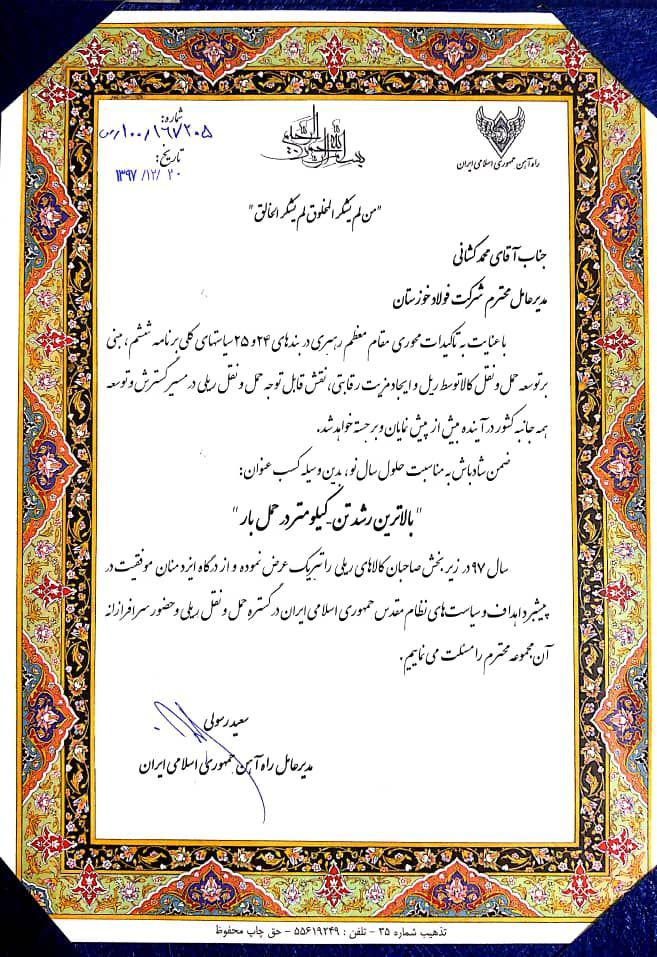 شماره: ۱۰۰/۱۶۷۲۰۵/ص
تاریخ: ۱۳۹۷/۱۲/۲۰
بسم الله الرحمن الرحیم
راه آهن جمهوری اسلامی ایران
"من لم یشکر المخلوق لم یشکر الخالق"
جناب آقای محمد کشانی
مدیرعامل محترم شرکت فولاد خوزستان
با عنایت به تاکیدات محوری مقام معظم رهبری در بندهای ۲۴ و ۲۵ سیاستهای کلی برنامه ششم، مبنی
بر توسعه حمل و نقل کالا توسط ریل و ایجاد مزیت رقابتی، نقش قابل توجه حمل و نقل ریلی در مسیر گسترش و توسعه
همه جانبه کشور در آینده بیش از پیش نمایان و برجسته خواهد شد.
ضمن شادباش به مناسبت حلول سال نو، بدین وسیله کسب عنوان:
"بالاترین رشد تن-کیلومتر در حمل بار"
سال ۹۷ در زیر بخش صاحبان کالاهای ریلی را تبریک عرض نموده و از درگاه ایزد منان موفقیت در
پیشبرد اهداف و سیاست‌های نظام مقدس جمهوری اسلامی ایران در گستره حمل و نقل ریلی و حضور سرافرازانه
آن مجموعه محترم را مسئلت می نماییم.
سعید رسولی
مدیرعامل راه آهن جمهوری اسلامی ایران
تذهیب شماره ۳۵ - تلفن : ۵۵۶۱۹۲۴۹ - حق چاپ محفوظ